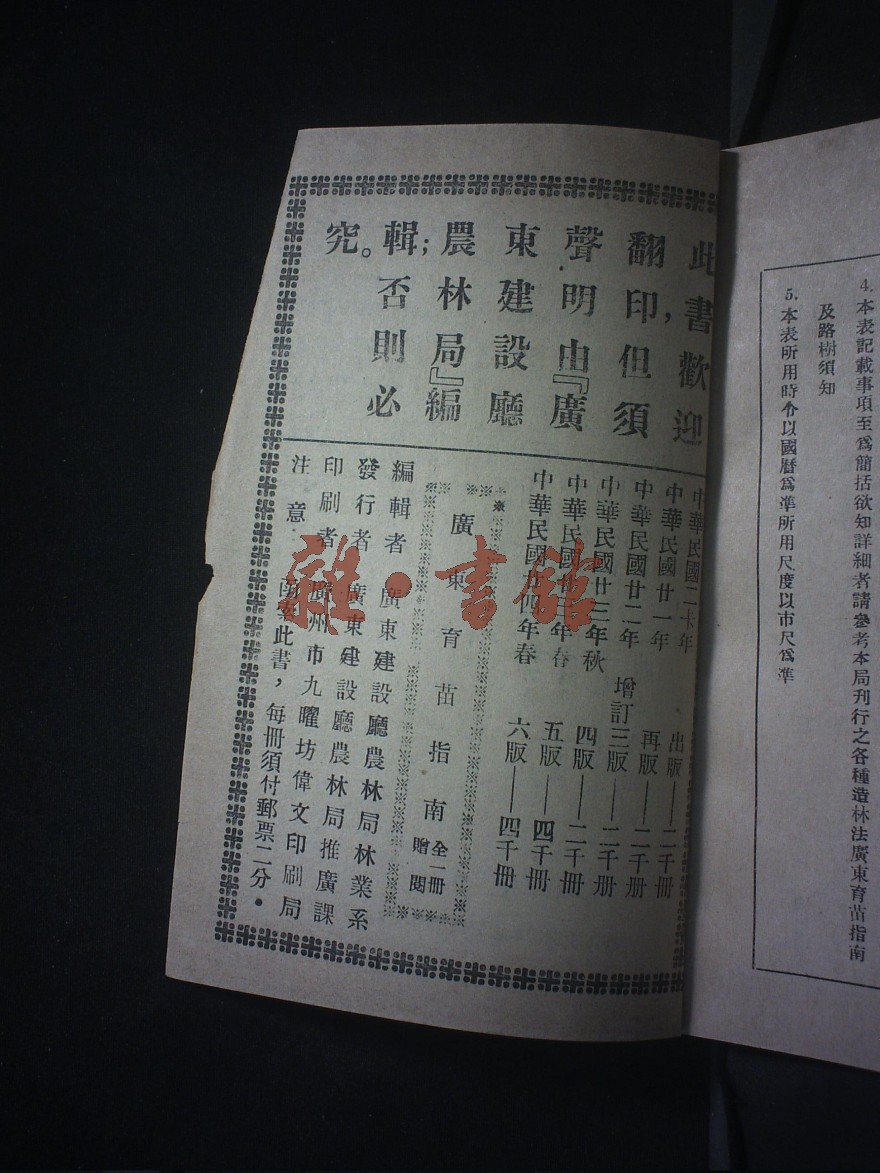 4. 本表記載事項至爲簡括欲知詳細者請參考本局刊行之各種造林法廣東育苗指南
及路樹須知
5. 本表所用時令以國曆爲準所用尺度以市尺爲準
此書歡迎
翻印,但須
聲明由『廣
東建設廳
農林局』編
輯;否則必
究。
中華民國二十年 出版——二千冊
中華民國廿一年 再版——二千册
中華民國廿二年 增訂三版——二千册
中華民國廿三年秋 四版——二千冊
中華民國廿 年春 五版——四千冊
中華民國 四年春 六版——四千冊
廣東育苗指南 全一冊
贈閱
編輯者 廣東建設廳農林局林業系
發行者 廣東建設廳農林局推廣課
印刷者 廣州市九曜坊偉文印刷局
注意 函索此書,每冊須付郵票二分.
雜·書館